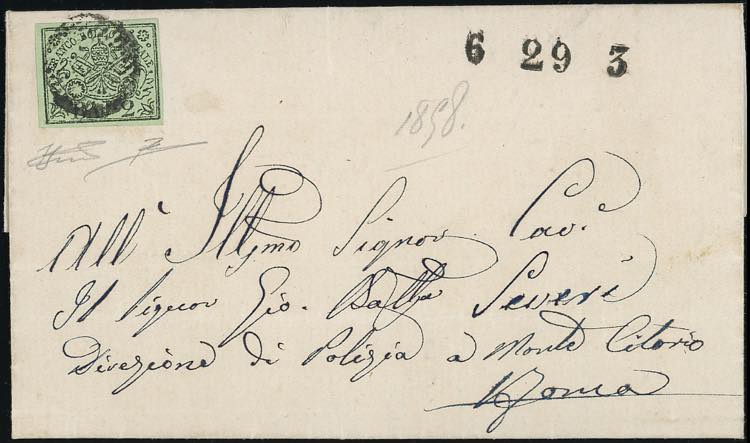 FRANCO BOLLO POSTALE
6 29 3
1858.
All' Illmo Signor Cav.e
Il Signor Gio. Batta Severi
Direzione di Polizia a Monte Citorio
Roma